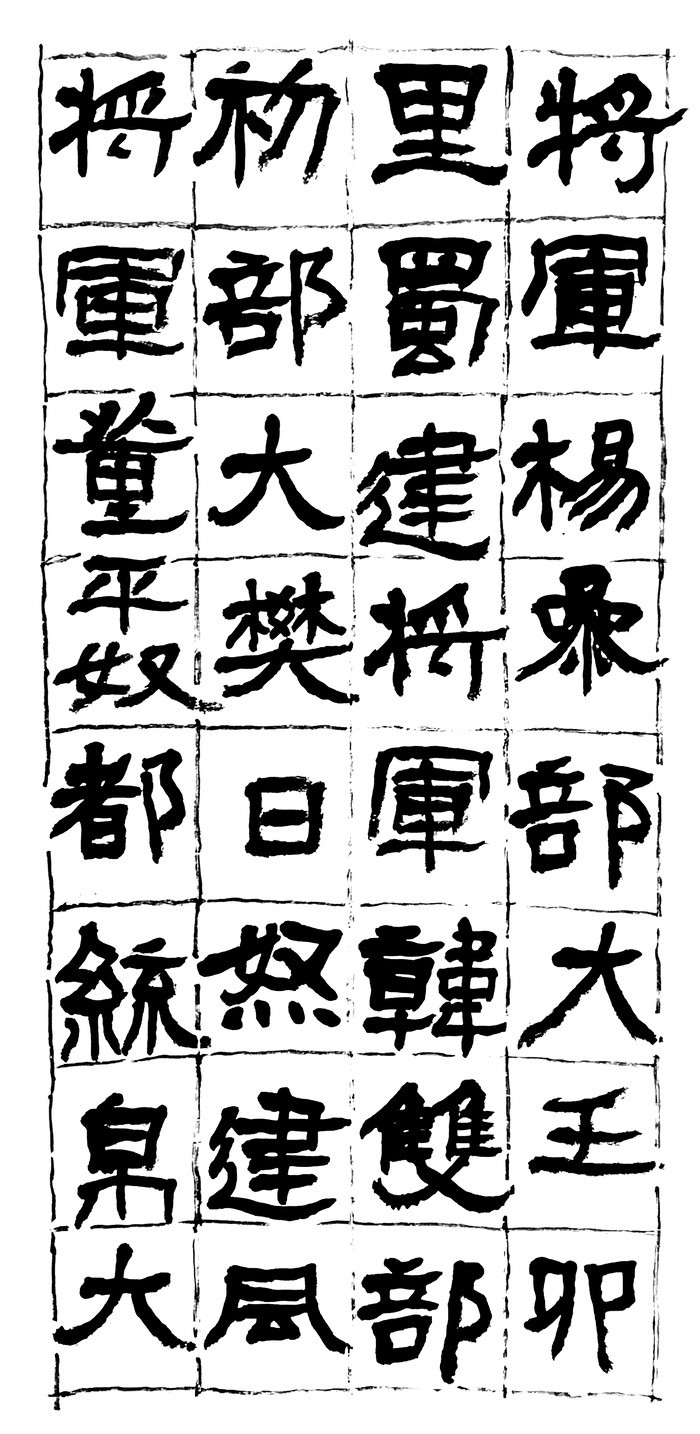 將軍楊󠄁部大王卯
里蜀建將軍韓雙部
初部大樊日怒建風
將軍董平奴都統帛大